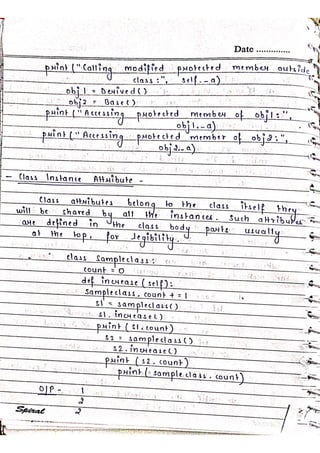 Date ..............
print ("Calling modified protected member outside
class :", self._a)
obj1 = Derived()
obj2 = Base()
print ("Accessing protected member of obj1:",
obj1._a)
print ("Accessing protected member of obj2:",
obj2._a)
- Class Instance Attribute -
Class attributes belong to the class itself they
will be shared by all the instances. Such attributes
are defined in the class body parts usually
at the top, for legibility.
class Sampleclass:
count = 0
def increase (self):
Sampleclass. count + = 1
S1 = sampleclass()
S1. increase()
print (S1.count)
S2 = sampleclass()
S2. increase()
print (S2. count)
print (Sample class. count)
O/P - 1
2
2
Spiral